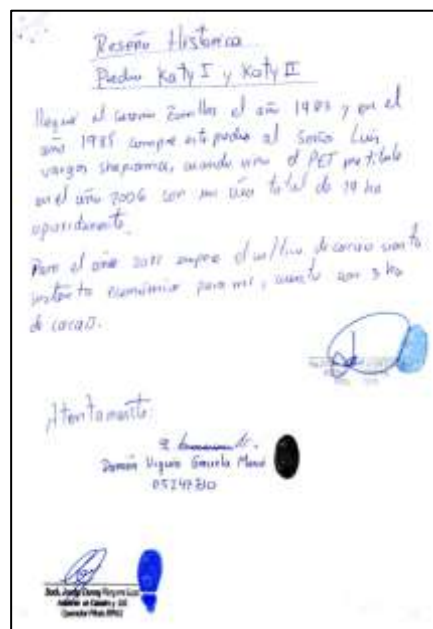 Reseña Historica
Predio Katy I y Katy II
llegue al caserio el año 1983 y en el
año 1985 compre este predio al Señor Luis
vargas shapiama, cuando vino el PET me titulo
en el año 2006 con un área total de 19 ha
aproxidamente.
Para el año empece el cultivo de cacao
sustento económico para mi, cuento con 3 ha
de cacao.
Atentamente:
Damián
05247310